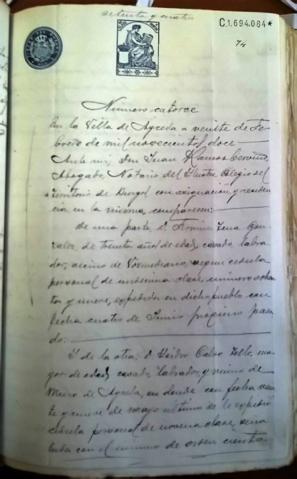 setenta y cuatro
C.1.694.084*
74
Número catorce
En la Villa de Agreda a veinte de Fe-
brero de mil novecientos doce
Ante mi, Don Juan Ramos
Abogado Notario del Ilustre Colegio del
territorio de Burgos con asignación y residen-
cia en la misma, comparecen:
De una parte D.
de treinta años de edad, casado labra-
dor, vecino de Vozmediano, según cedula
personal de undécima clase, numero ochen-
ta y nueve, expedida en dicho pueblo con
fecha cuatro de Junio proximo pasa-
do:
Y de la otra: D. Isidro Calvo ma-
yor de edad, casado labrador y vecino de
Muro de Agreda, en donde con fecha vein-
te y nueve de mayo ultimo se le expidió
cédula personal de novena clase, seña-
lada con el numero de orden ciento